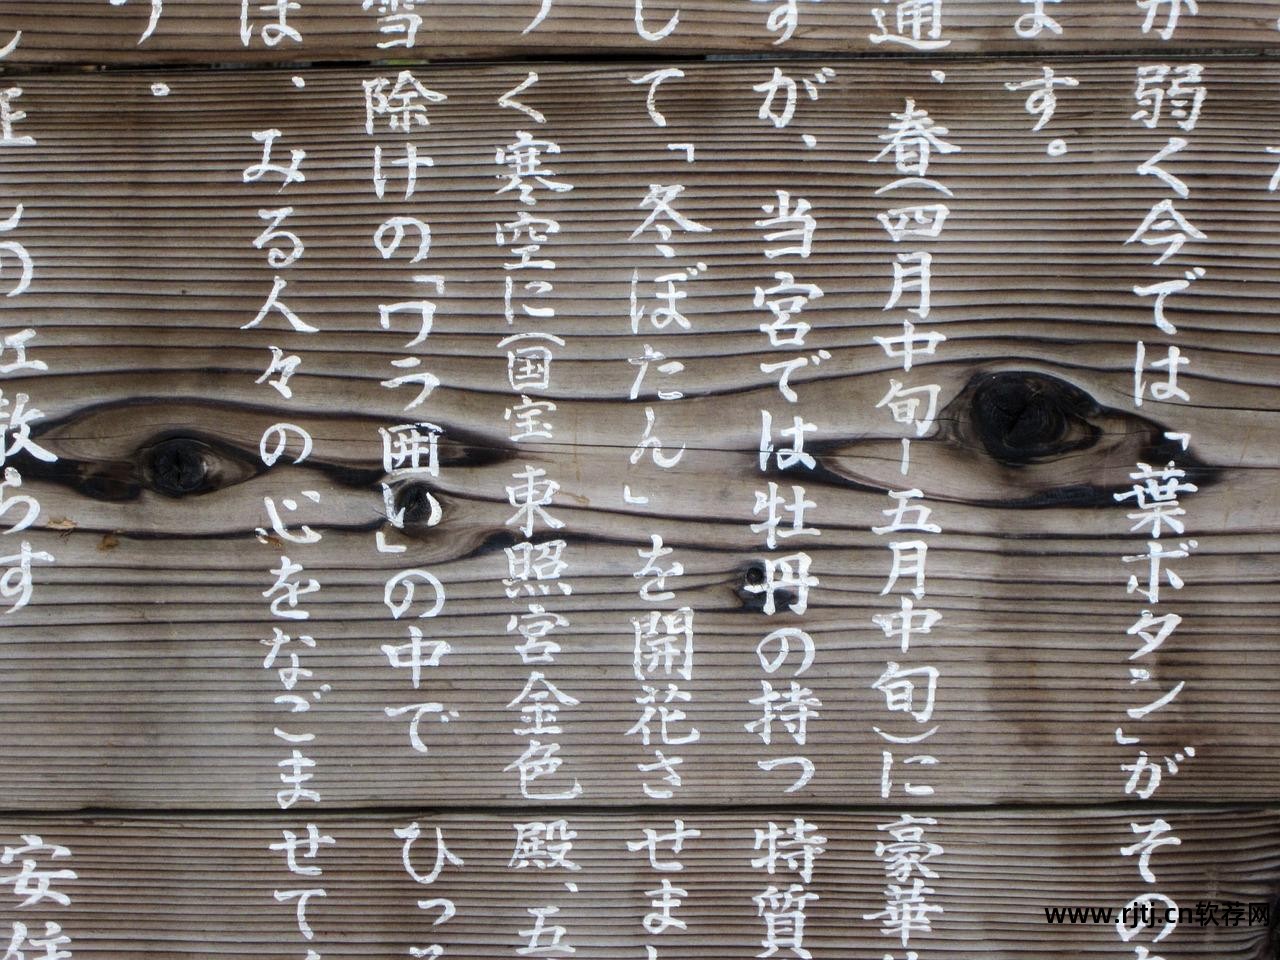 が弱く今では「葉ボタン」がその
ます。
通、春(四月中旬ー五月中旬)に豪華
すが、当宮では牡丹の持つ特質
して「冬ぼたん」を開花させま
く寒空に(国宝 東照宮金色殿、五
雪除けの「ワラ囲い」の中でひっ
は、みる人々の心をなごませて
う。
散らす 安住
www.rjtj.cn软荐网